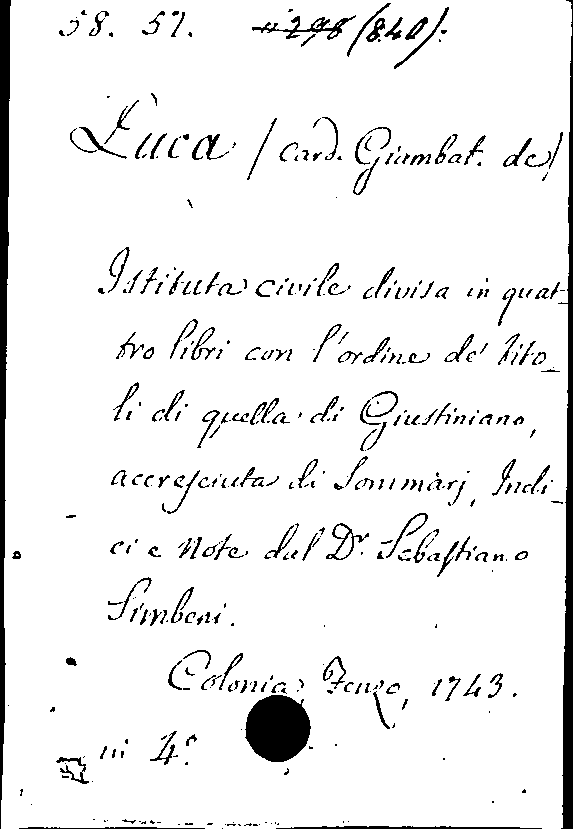 58. 57. n 298 (840).
Luca / card. Giambat. de /
Istituta civile divisa in quat-
tro libri con l'ordine de' tito-
li di quella di Giustiniano,
accresciuta di Sommarj, Indi-
ci e Note dal Dr. Sebastiano
Simbeni.
Colonia, 1743.
in 4.º